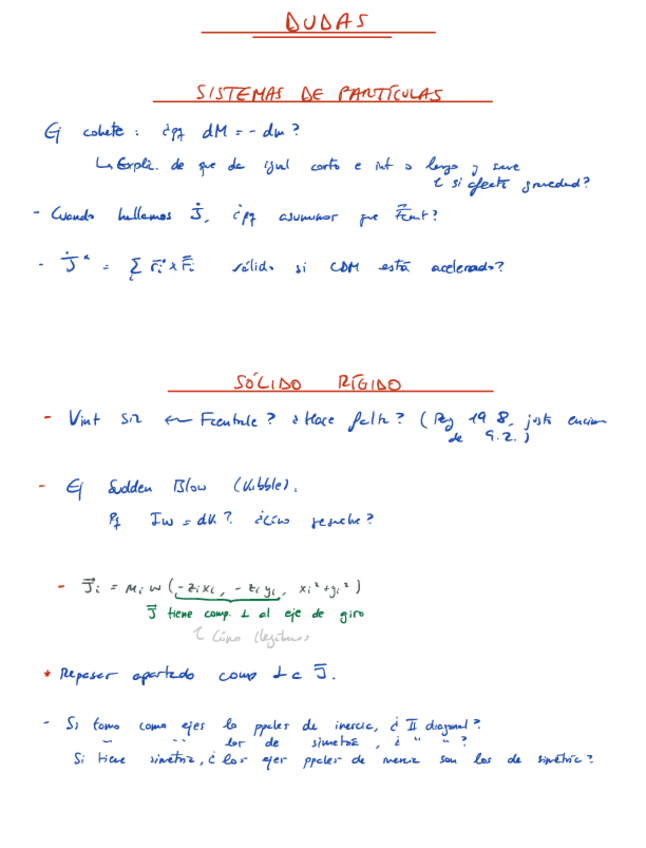 DUDAS
SISTEMAS DE PARTÍCULAS
Ej cohete : ¿pq dM = - dm ?
↳ Explic. de que da igual corto e int o largo y
si afecta gravedad?
- Cuando hallamos J̇, ¿pq asumimos que
- J̇* = Σ r⃗i* x F⃗i válido si CDM está acelerado?
SÓLIDO RÍGIDO
- Vint ← Fcentrale ? ¿Hace falta ? (Pag 198, justo encima
de 9.2.)
- Ej Sudden Blow (Kibble).
Pq Iω = dK ? ¿Cómo ?
- J⃗i = mi ω (-zixi, -ziyi, xi² + yi²)
J⃗ tiene comp. ⊥ al eje de giro
Cómo llegamos
* Repasar apartado comp ⊥ J⃗.
- Si tomo como ejes los ppales de inercia, ¿ II diagonal ?
— -- los de simetría, ¿ " " ?
Si tiene simetría, ¿los ejes ppales de inercia son los de simetría ?